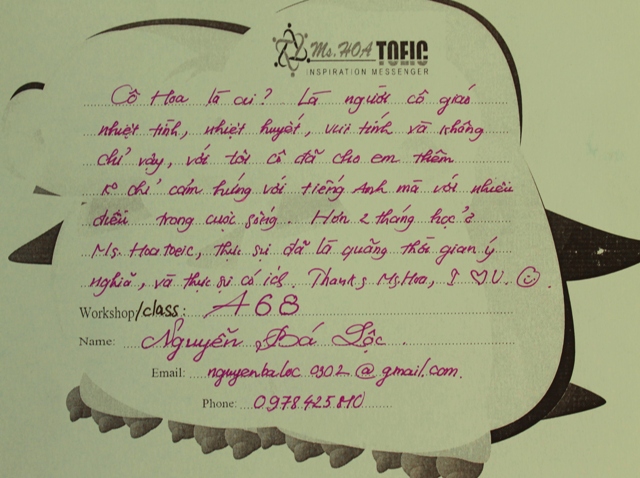 Ms. HOA TOEIC
INSPIRATION MESSENGER
Cô Hoa là ai? Là người cô giáo
nhiệt tình, nhiệt huyết, vui tính và không
chỉ vậy, với tôi cô đã cho em thêm
ko chỉ cảm hứng với tiếng Anh mà với nhiều
điều trong cuộc sống. Hơn 2 tháng học ở
Ms. Hoa Toeic, thực sự đã là quãng thời gian ý
nghĩa, và thực sự có ích. Thanks Ms.Hoa, I ♡ U. ☺
Workshop/class: A68
Name: Nguyễn Bá Lộc
Email: nguyenbaloc0302@gmail.com.
Phone: 0978.425.810